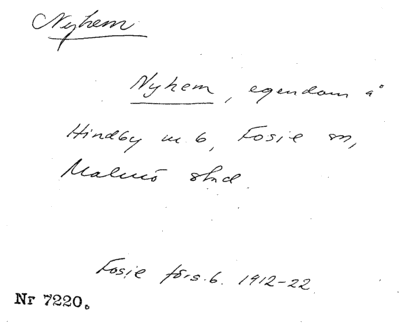 Nyhem
Nyhem, egendom å
Hindby nr 6, Fosie sn,
Malmö stad.
Fosie förs.b. 1912-22
Nr 7220.